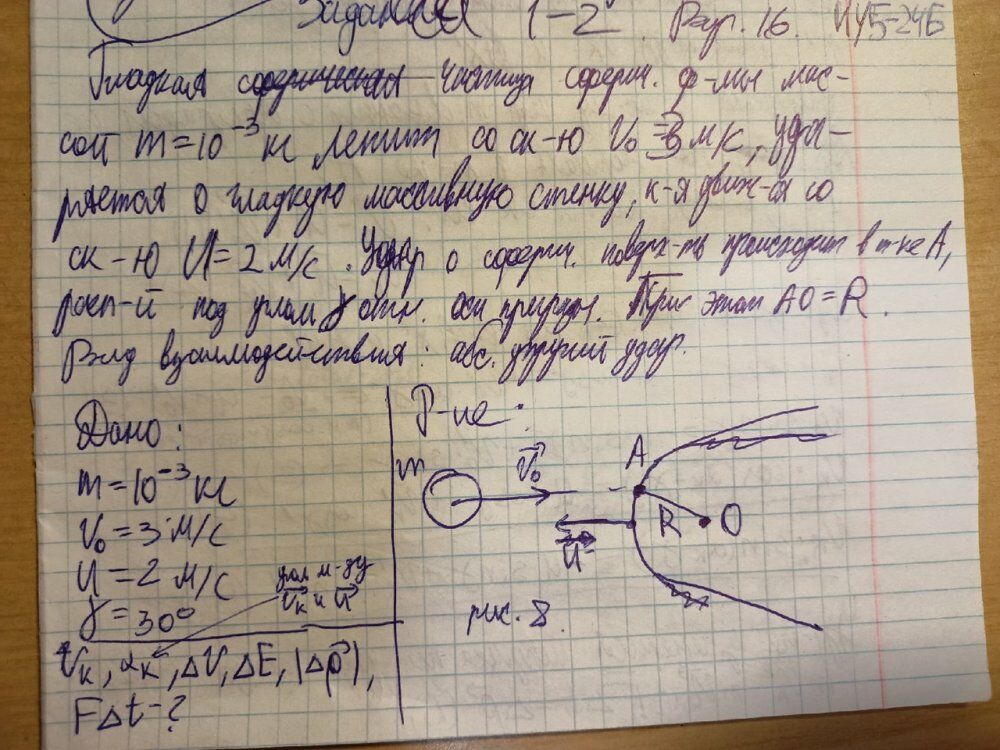 Задания 1-2. Вар. 16. ИУ5-24Б
Гладкая сферическая частица сферич. ф-мы мас-
сой m = 10⁻³ кг летит со ск-ю V₀ = 3 м/с, уда-
ряется о гладкую массивную стенку, к-я движ-ся со
ск-ю U = 2 м/с. Удар о сферич. поверх-ть происходит в т-ке A,
расп-й под углом γ отн. оси природы. При этом AO = R.
Вид взаимодействия: абс. упругий удар.
Дано:
m = 10⁻³ кг
V₀ = 3 м/с
U = 2 м/с
γ = 30°
угол м-ду
V⃗ₖ и U⃗
Vₖ, αₖ, ΔV, ΔE, |Δp⃗|,
FΔt - ?
Р-ие:
m
V⃗₀
A
R
O
U⃗
рис. 8.